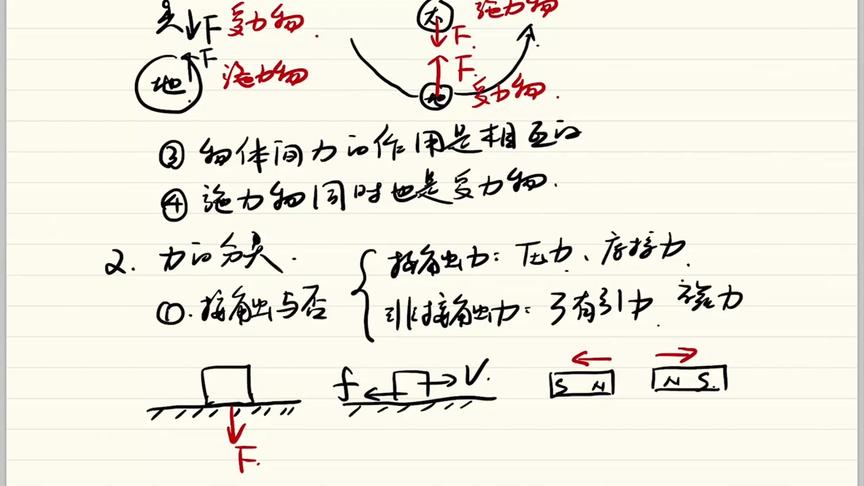 F 受力物. 太 施力物
F F.
地 施力物 F.
地 受力物.
③ 物体间力的作用是相互的
④ 施力物同时也是受力物.
2. 力的分类.
① 接触与否
接触力: 压力、摩擦力
非接触力: 万有引力 磁力
f V. S N N S
F.